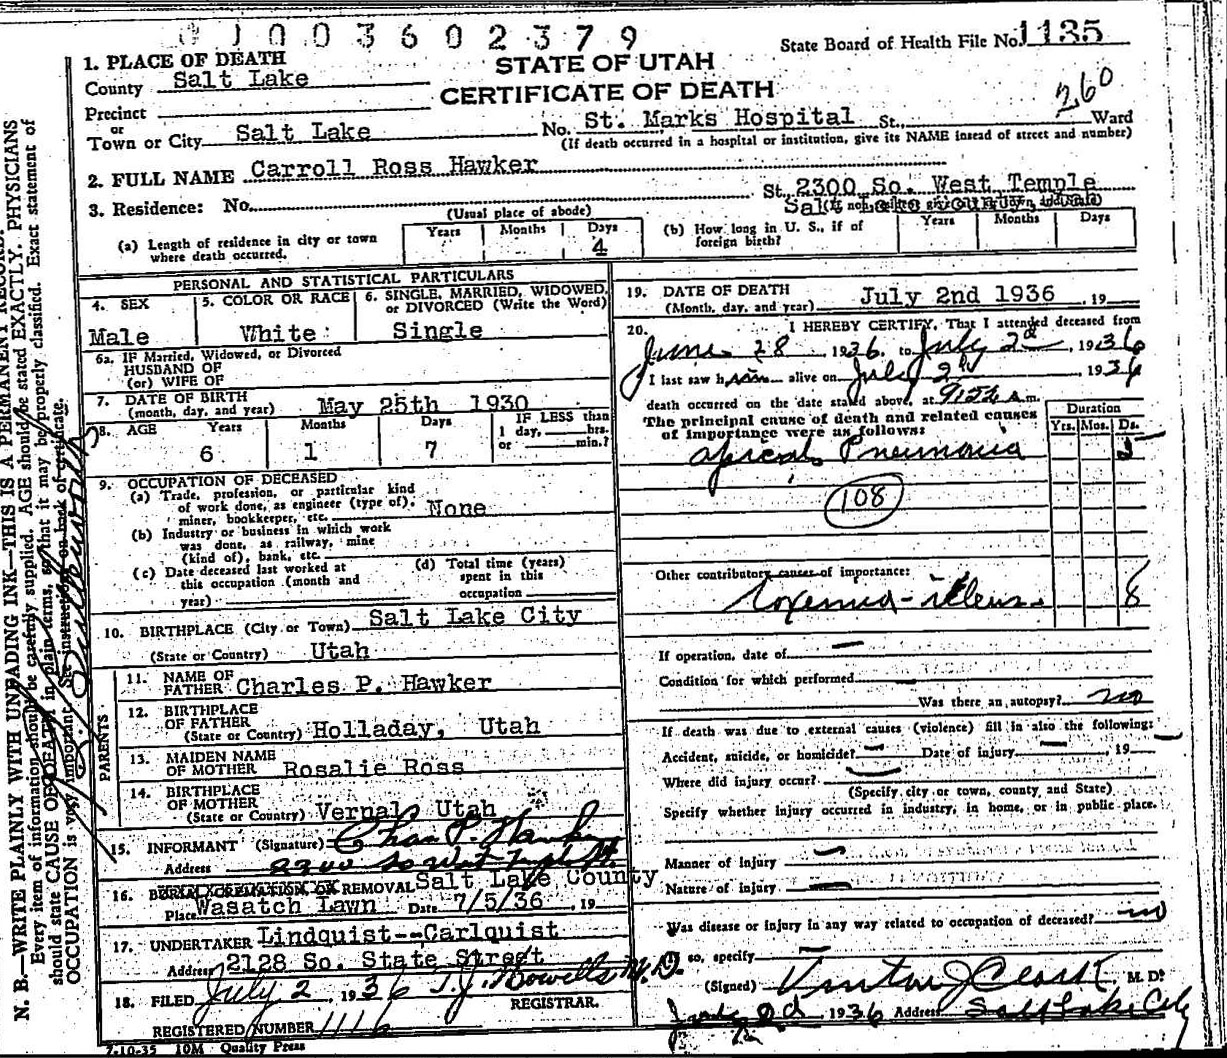 1003602379
State Board of Health File No. 1135
1. PLACE OF DEATH
STATE OF UTAH
County Salt Lake
CERTIFICATE OF DEATH
260
Precinct
or
Town or City Salt Lake No. St. Marks Hospital St., Ward
(If death occurred in a hospital or institution, give its NAME insead of street and number)
2. FULL NAME Carroll Ross Hawker
3. Residence: No. St. 2300 So. West Temple
(Usual place of abode)
Salt Lake County, Utah
(a) Length of residence in city or town where death occurred. Years Months Days 4
(b) How long in U. S., if of foreign birth? Years Months Days
PERSONAL AND STATISTICAL PARTICULARS
4. SEX Male
5. COLOR OR RACE White
6. SINGLE, MARRIED, WIDOWED, or DIVORCED (Write the Word) Single
6a. IF Married, Widowed, or Divorced
HUSBAND OF
(or) WIFE OF
7. DATE OF BIRTH
(month, day, and year) May 25th 1930
8. AGE Years Months Days IF LESS than
1 day, hrs.
or min.?
6 1 7
9. OCCUPATION OF DECEASED
(a) Trade, profession, or particular kind
of work done, as engineer (type of),
miner, bookkeeper, etc. None
(b) Industry or business in which work
was done, as railway, mine
(kind of), bank, etc.
(c) Date deceased last worked at
this occupation (month and
year)
(d) Total time (years)
spent in this
occupation
10. BIRTHPLACE (City or Town) Salt Lake City
(State or Country) Utah
PARENTS
11. NAME OF
FATHER Charles P. Hawker
12. BIRTHPLACE
OF FATHER
(State or Country) Holladay, Utah
13. MAIDEN NAME
OF MOTHER Rosalie Ross
14. BIRTHPLACE
OF MOTHER
(State or Country) Vernal Utah
15. INFORMANT (Signature) Chas P. Hawker
Address 2300 So West Temple St.
16. BURIAL, CREMATION OR REMOVAL Salt Lake County
Place Wasatch Lawn Date 7/5/36, 19
17. UNDERTAKER Lindquist--Carlquist
Address 2128 So. State Street
18. FILED July 2 1936 T. J. Howells M.D.
REGISTRAR.
REGISTERED NUMBER 1116
7-10-35 10M Quality Press
19. DATE OF DEATH
(Month, day, and year) July 2nd 1936, 19
20. I HEREBY CERTIFY, That I attended deceased from
June 28 1936, to July 2nd, 1936
I last saw him alive on July 2nd 1936
death occurred on the date stated above, at m.
The principal cause of death and related causes
of importance were as follows:
Duration
Yrs. Mos. Ds.
apical Pneumonia 5
108
Other contributory causes of importance:
Toxemia - ileus 8
If operation, date of —
Condition for which performed —
Was there an autopsy? no
If death was due to external causes (violence) fill in also the following:
Accident, suicide, or homicide? — Date of injury —, 19
Where did injury occur? —
(Specify city or town, county and State)
Specify whether injury occurred in industry, in home, or in public place.
Manner of injury —
Nature of injury —
Was disease or injury in any way related to occupation of deceased? no
so, specify —
(Signed) Vinton J Clark, M. D.
2nd 1936 Address Salt Lake City
N. B.—WRITE PLAINLY WITH UNFADING INK—THIS IS A PERMANENT RECORD.
Every item of information should be carefully supplied. AGE should be stated EXACTLY. PHYSICIANS
should state CAUSE OF DEATH in plain terms, so that it may be properly classified. Exact statement of
OCCUPATION is very important. See instructions on back of certificate.